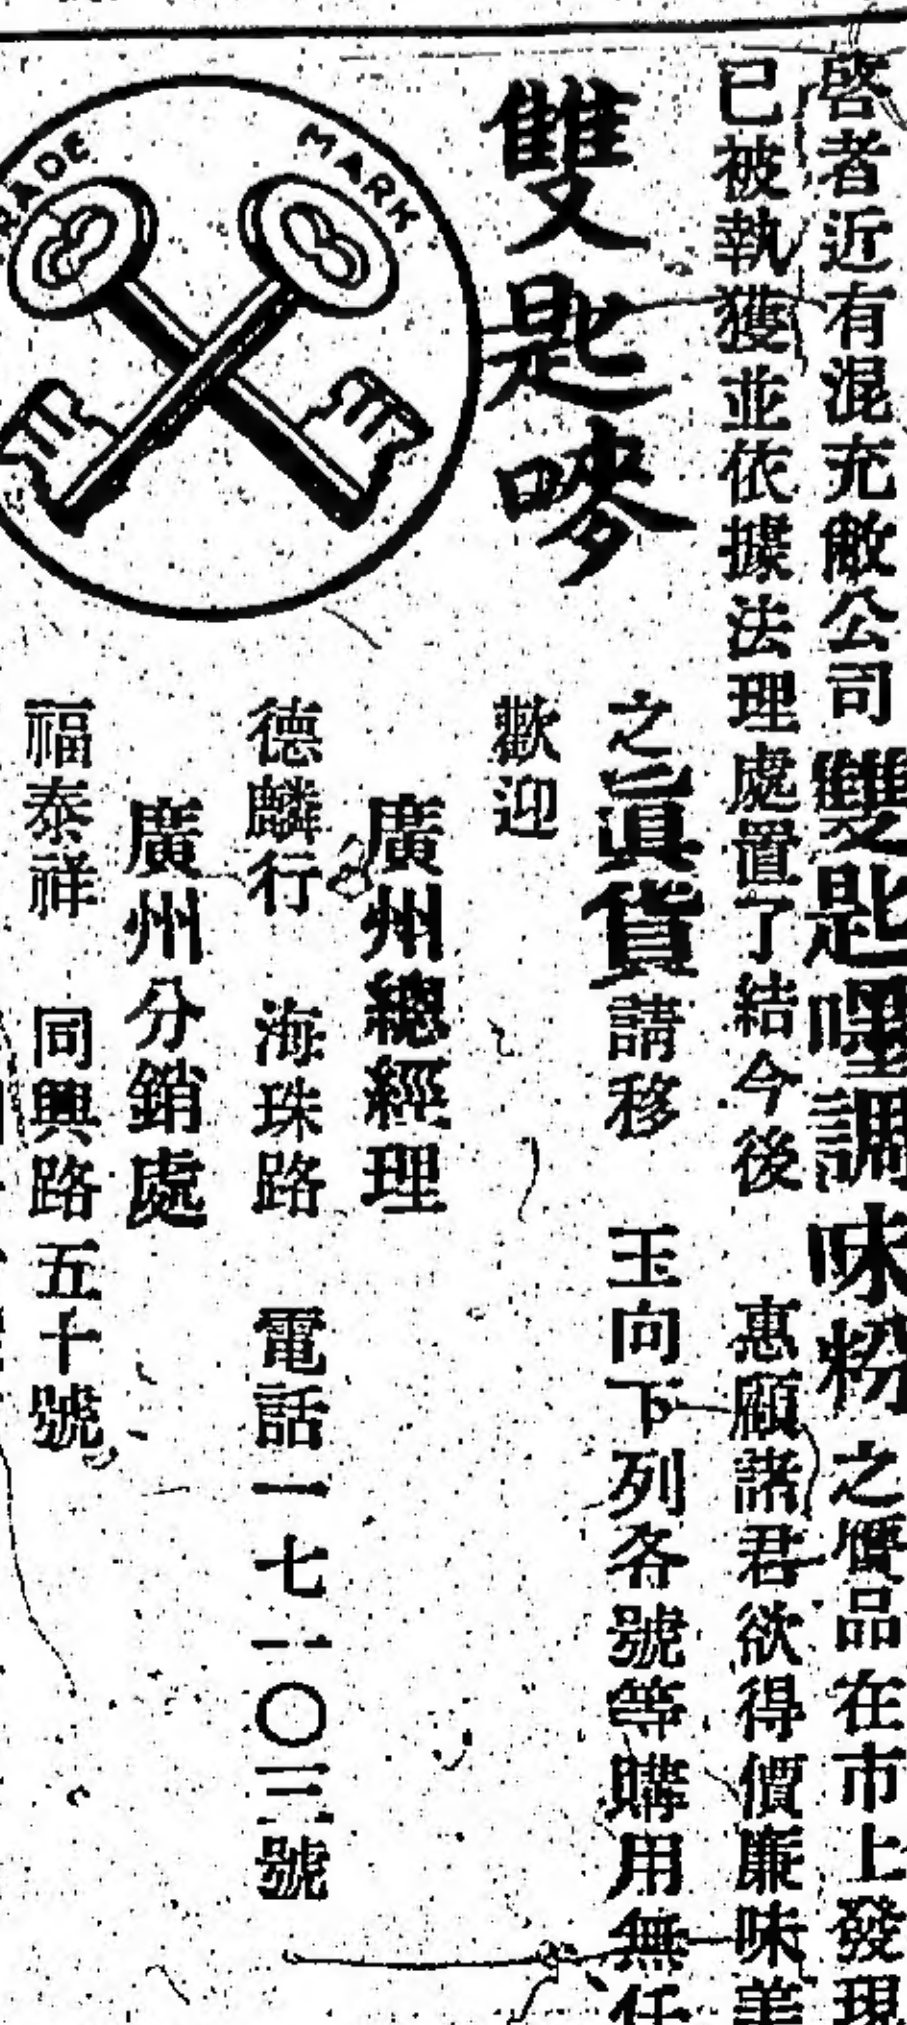 啓者近有混充敝公司雙匙嘜調味粉之僞品在市上發現
已被執獲並依據法理處置了結今後 惠顧諸君欲得價廉味美
雙匙嘜
之眞貨請移 玉向下列各號等購用無任
歡迎
RADE MARK
廣州總經理
德麟行 海珠路 電話一七一〇三號
廣州分銷處
福泰祥 同興路五十號